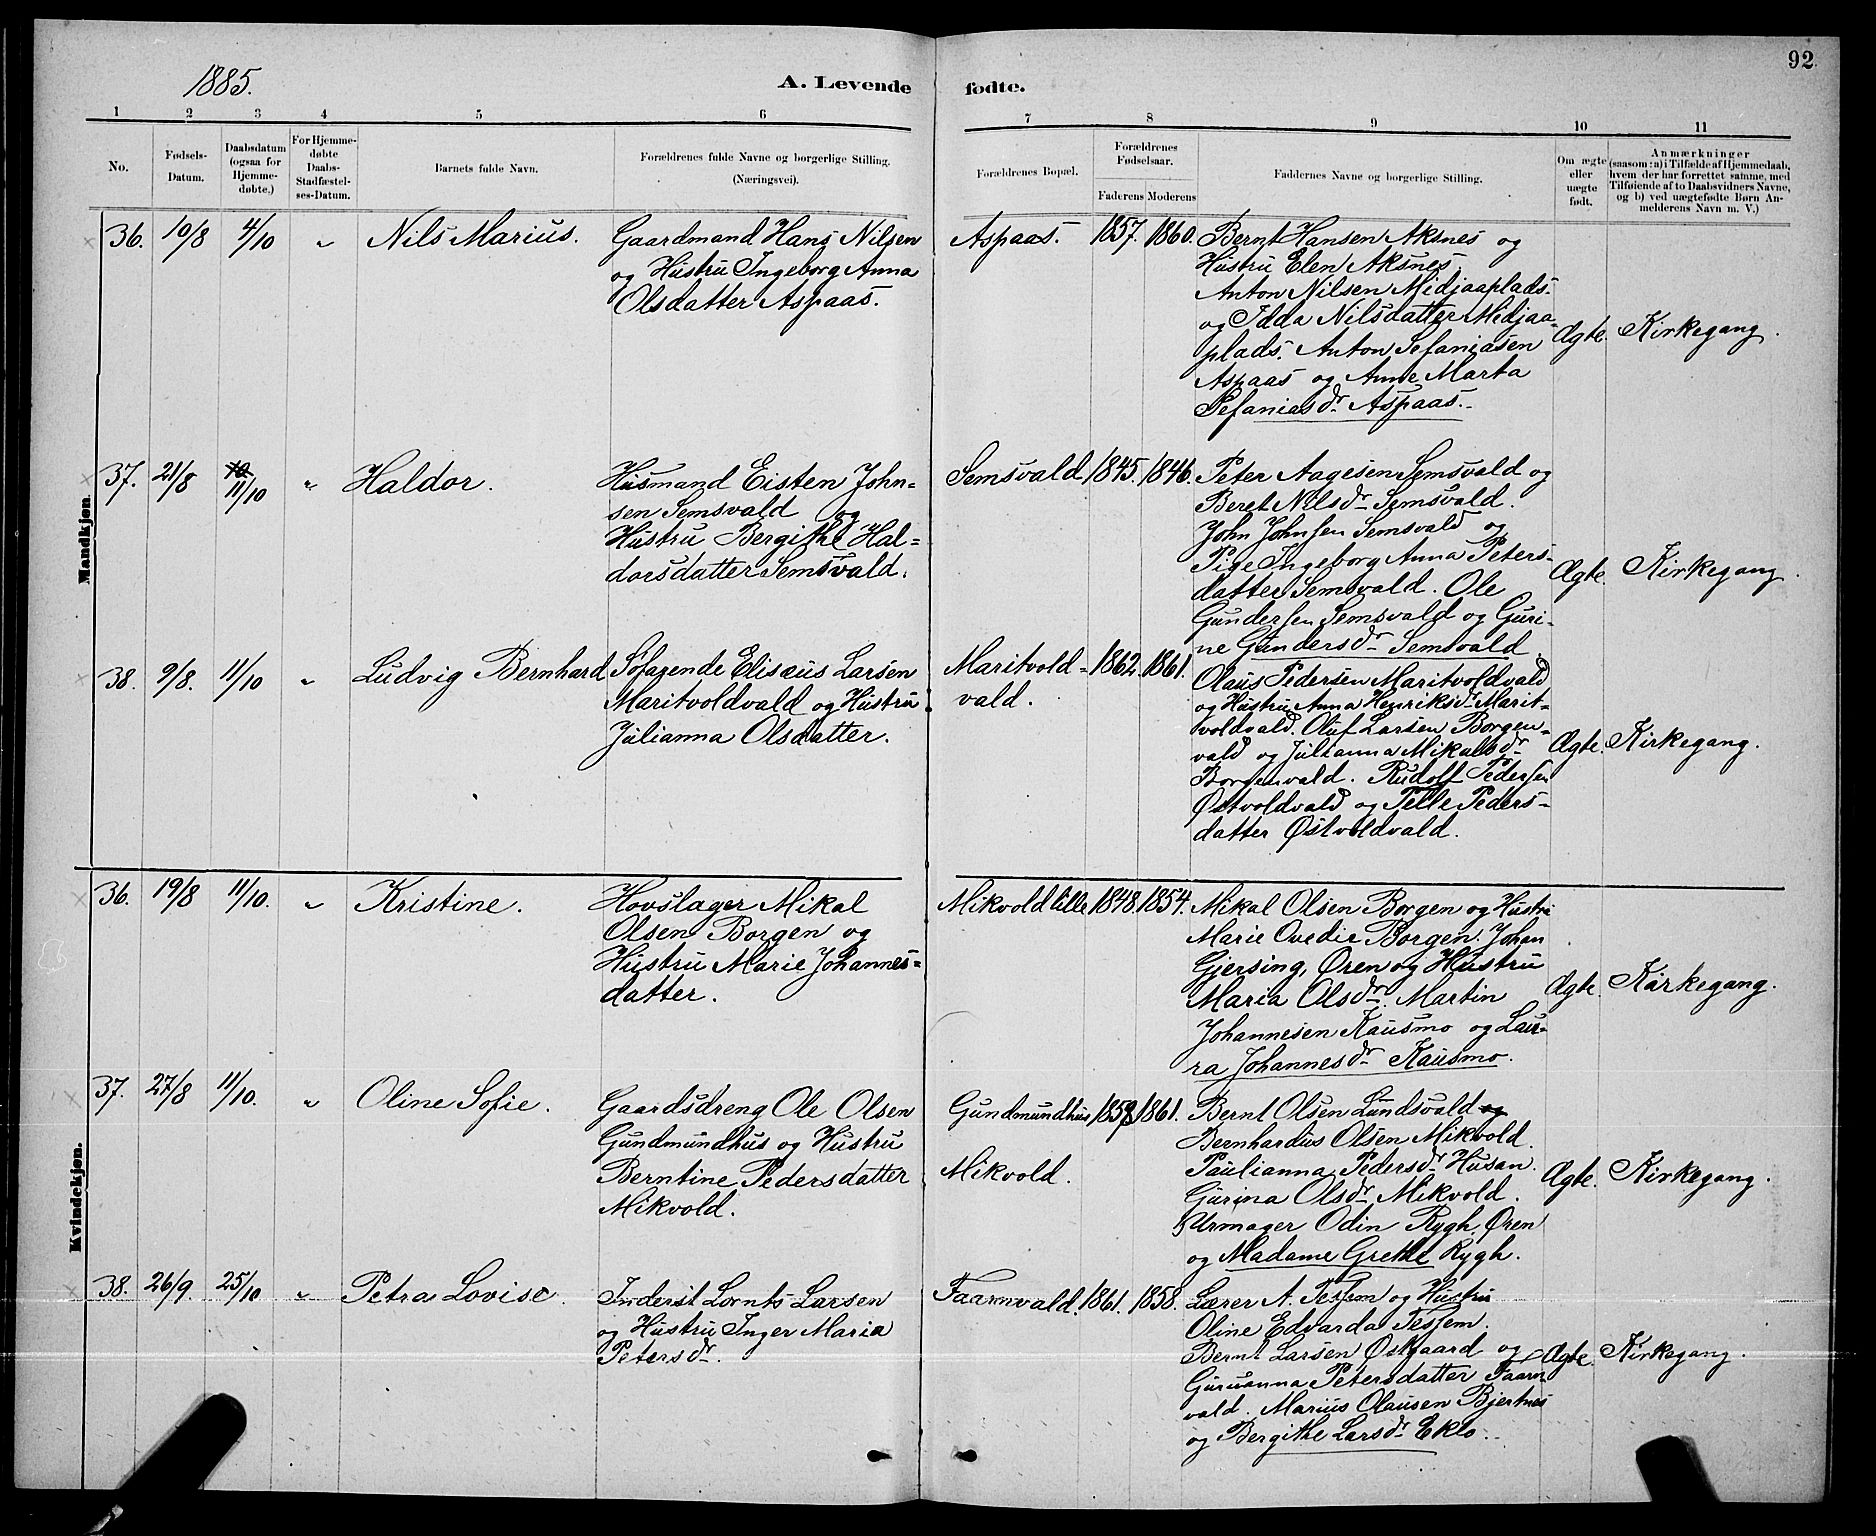 92
1885.
A. Levende fødte.
1 2 3 4 5 6 7 8 9 10 11
No.
Fødsels-
Datum.
Daabsdatum
(ogsaa for
Hjemme-
døbte.)
For Hjemme-
døbte
Daabs-
Stadfæstel-
ses-Datum.
Barnets fulde Navn.
Forældrenes fulde Navne og borgerlige Stilling.
(Næringsvei).
Forældrenes Bopæl.
Forældrenes
Fødselsaar.
Faderens Moderens
Faddernes Navne og borgerlige Stilling.
Om ægte
eller
uægte
født.
Anmærkninger
(saasom: a) i Tilfælde af Hjemmedaab,
hvem der har forrettet samme, med
Tilføiende af to Daabsvidners Navne,
og b) ved uægtefødte Børn An-
melderens Navn m. V.)
Mandkjøn.
36. 19/8 4/10 " Nils Marius.
Gaardmand Hans Nilsen
og Hustru Ingeborg Anna
Olsdatter Aspaas.
Aspaas. 1857. 1860.
Bernt Hansen Aksnes og
Hustru Elen Aksnes,
Anton Nilsen Midjaaplads.
og Idda Nilsdatter Midjaa-
plads. Anton Sefaniasen
Aspaas og Anne Marta
Sefaniasdr Aspaas.
Ægte. Kirkegang.
37. 21/8 11/10 " Haldor.
Husmand Eisten John-
sen Semsvald og
Hustru Bergithe Hal-
dorsdatter Semsvald.
Semsvald 1845. 1846.
Peter Aagesen Semsvald og
Beret Nilsdr Semsvald.
John Johnsen Semsvald og
Pige Ingeborg Anna Peters-
datter Semsvald. Ole
Gundersen Semsvald og Guri-
ne Gundersdr Semsvald.
Ægte. Kirkegang.
38. 9/8. 11/10 " Ludvig Bernhard
Søfarende Elisæus Larsen
Maritvoldvald og Hustru
Julianna Olsdatter.
Maritvold-
vald.
1862. 1861.
Olaus Pedersen Maritvoldvald
og Hustru Anna Henriksdr Marit-
voldvald. Oluf Larsen Borgen-
vald og Julianna Mikalsdr
Borgenvald. Rudolf Pedersen
Østvoldvald og Pelle Peders-
datter Østvoldvald.
Ægte. Kirkegang.
Kvindekjøn.
36. 19/8 11/10. " Kristine.
Hovslager Mikal
Olsen Borgen og
Hustru Marie Johannes-
datter.
Mikvold lille 1848. 1854.
Mikal Olsen Borgen og Hustru
Marie Ovedie Borgen. Johan
Gjersing, Øren og Hustru
Maria Olsdr. Martin
Johannesen Kausmo og Lau-
ra Johannesdr Kausmo.
Ægte. Kirkegang.
37. 27/8 11/10. " Oline Sofie.
Gaardsdreng Ole Olsen
Gundmundhus og Hustru
Berntine Pedersdatter
Mikvold.
Gundmundhus
Mikvold.
1858 1861.
Bernt Olsen Lundsvald og
Bernhardus Olsen Mikvold.
Paulianna Pedersdr Husan.
Gurina Olsdr Mikvold.
Urmager Odin Rygh, Øren
og Madame Grethe Rygh.
Ægte. Kirkegang.
38. 26/9. 25/10 " Petra Lovise.
Inderst Lornts Larsen
og Hustru Inger Maria
Petersdr.
Faarnvald. 1861. 1858.
Lærer A. Tessem og Hustru
Oline Edvarda Tessem.
Bernt Larsen Østgaard og
Guruanna Petersdatter Faarn-
vald. Marius Olausen Bjertnes
og Bergithe Larsdr Eklo.
Ægte. Kirkegang.